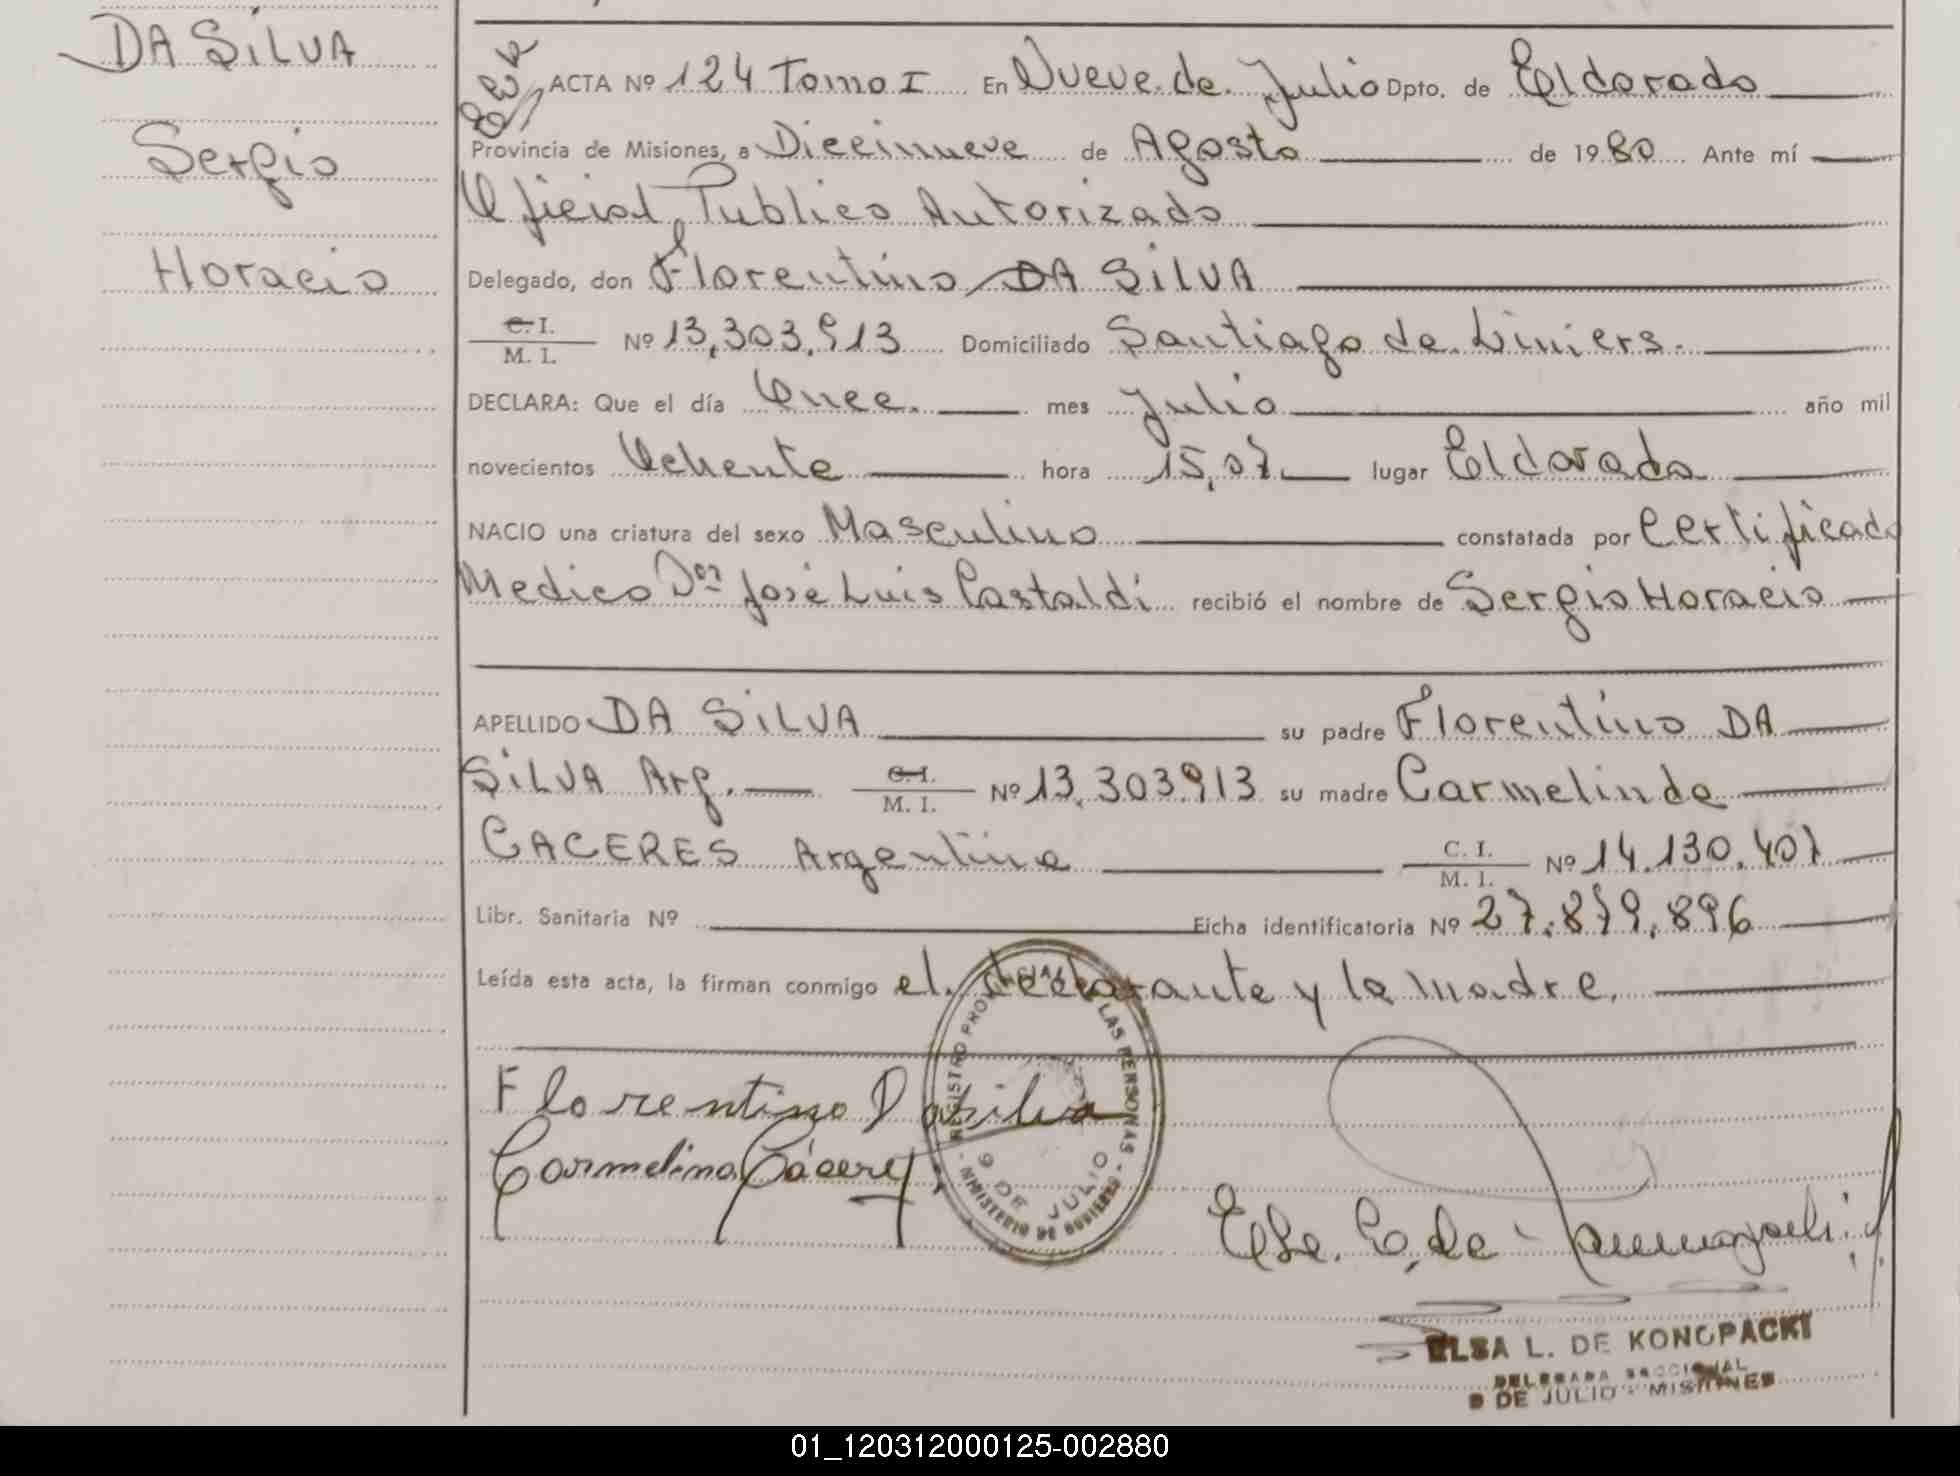 DA SILVA
Sergio
Horacio
ACTA Nº 124 Tomo I En Nueve de Julio Dpto. de Eldorado
Provincia de Misiones, a Diecinueve de Agosto de 1980 Ante mí
Oficial Publico Autorizado
Delegado, don Florentino DA SILVA
C. I.
M. I. Nº 13,303.913 Domiciliado Santiago de Liniers.
DECLARA: Que el día Once. mes Julio año mil
novecientos Ochenta hora 15,07 lugar Eldorado
NACIO una criatura del sexo Masculino constatada por Certificado
Medico Dor José Luis Castaldi recibió el nombre de Sergio Horacio
APELLIDO DA SILVA su padre Florentino DA
SILVA Arg. C. I.
M. I. Nº 13.303.913 su madre Carmelinda
CACERES Argentina C. I.
M. I. Nº 14.130.407
Libr. Sanitaria Nº Ficha identificatoria Nº 27.879.896
Leída esta acta, la firman conmigo el declarante y la madre.
Florentino Dasilva
Carmelina Cácerez
REGISTRO PROVINCIAL DE LAS PERSONAS
9 DE JULIO
MINISTERIO DE GOBIERNO
ELSA L. DE KONOPACKI
DELEGADA SECCIONAL
9 DE JULIO - MISIONES
01_120312000125-002880